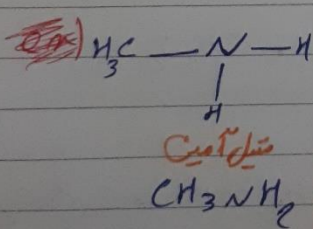 H₃C — N — H
H
متیل آمین
CH₃NH₂